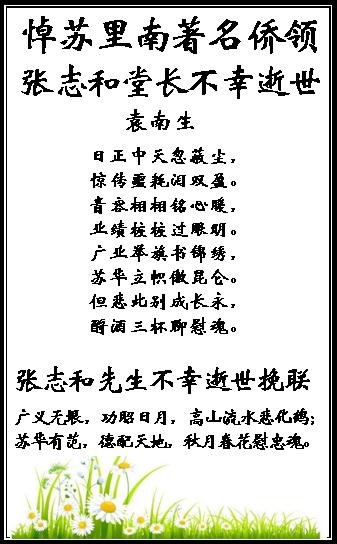 悼苏里南著名侨领
张志和堂长不幸逝世
袁南生
日正中天忽蔽尘，
惊传噩耗泪双盈。
音容相相铭心暖，
业绩桩桩过眼明。
广业举旗书锦绣，
苏华立帜傲昆仑。
但悲此别成长永，
酹酒三杯聊慰魂。
张志和先生不幸逝世挽联
广义无垠，功昭日月，高山流水悲化鹤；
苏华有范，德配天地，秋月春花慰忠魂。